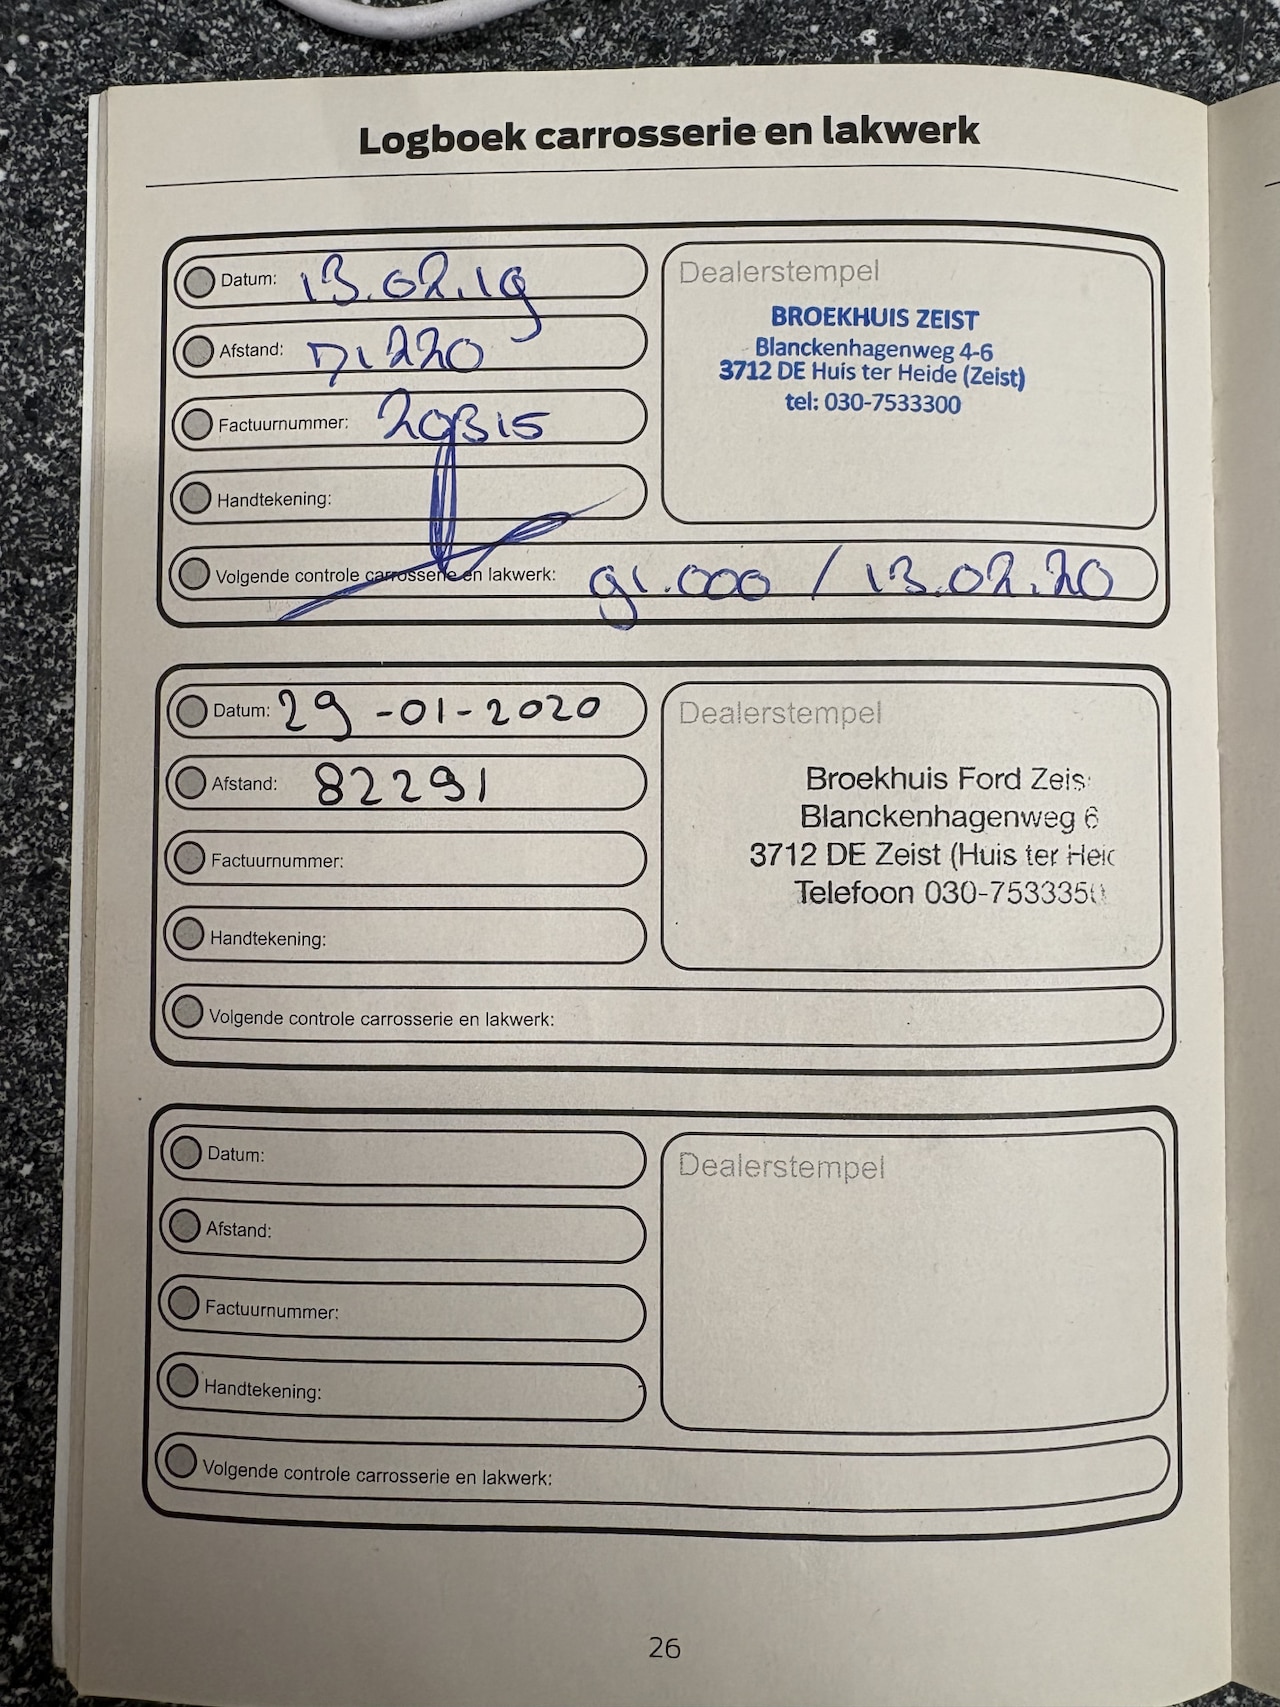 Logboek carrosserie en lakwerk
Datum: 13.02.19
Afstand: 71220
Factuurnummer: 209315
Handtekening:
Volgende controle carrosserie en lakwerk: 91.000 / 13.02.20
Dealerstempel
BROEKHUIS ZEIST
Blanckenhagenweg 4-6
3712 DE Huis ter Heide (Zeist)
tel: 030-7533300
Datum: 29-01-2020
Afstand: 82291
Factuurnummer:
Handtekening:
Volgende controle carrosserie en lakwerk:
Dealerstempel
Broekhuis Ford Zeis
Blanckenhagenweg 6
3712 DE Zeist (Huis ter Heid
Telefoon 030-7533350
Datum:
Afstand:
Factuurnummer:
Handtekening:
Volgende controle carrosserie en lakwerk:
Dealerstempel
26